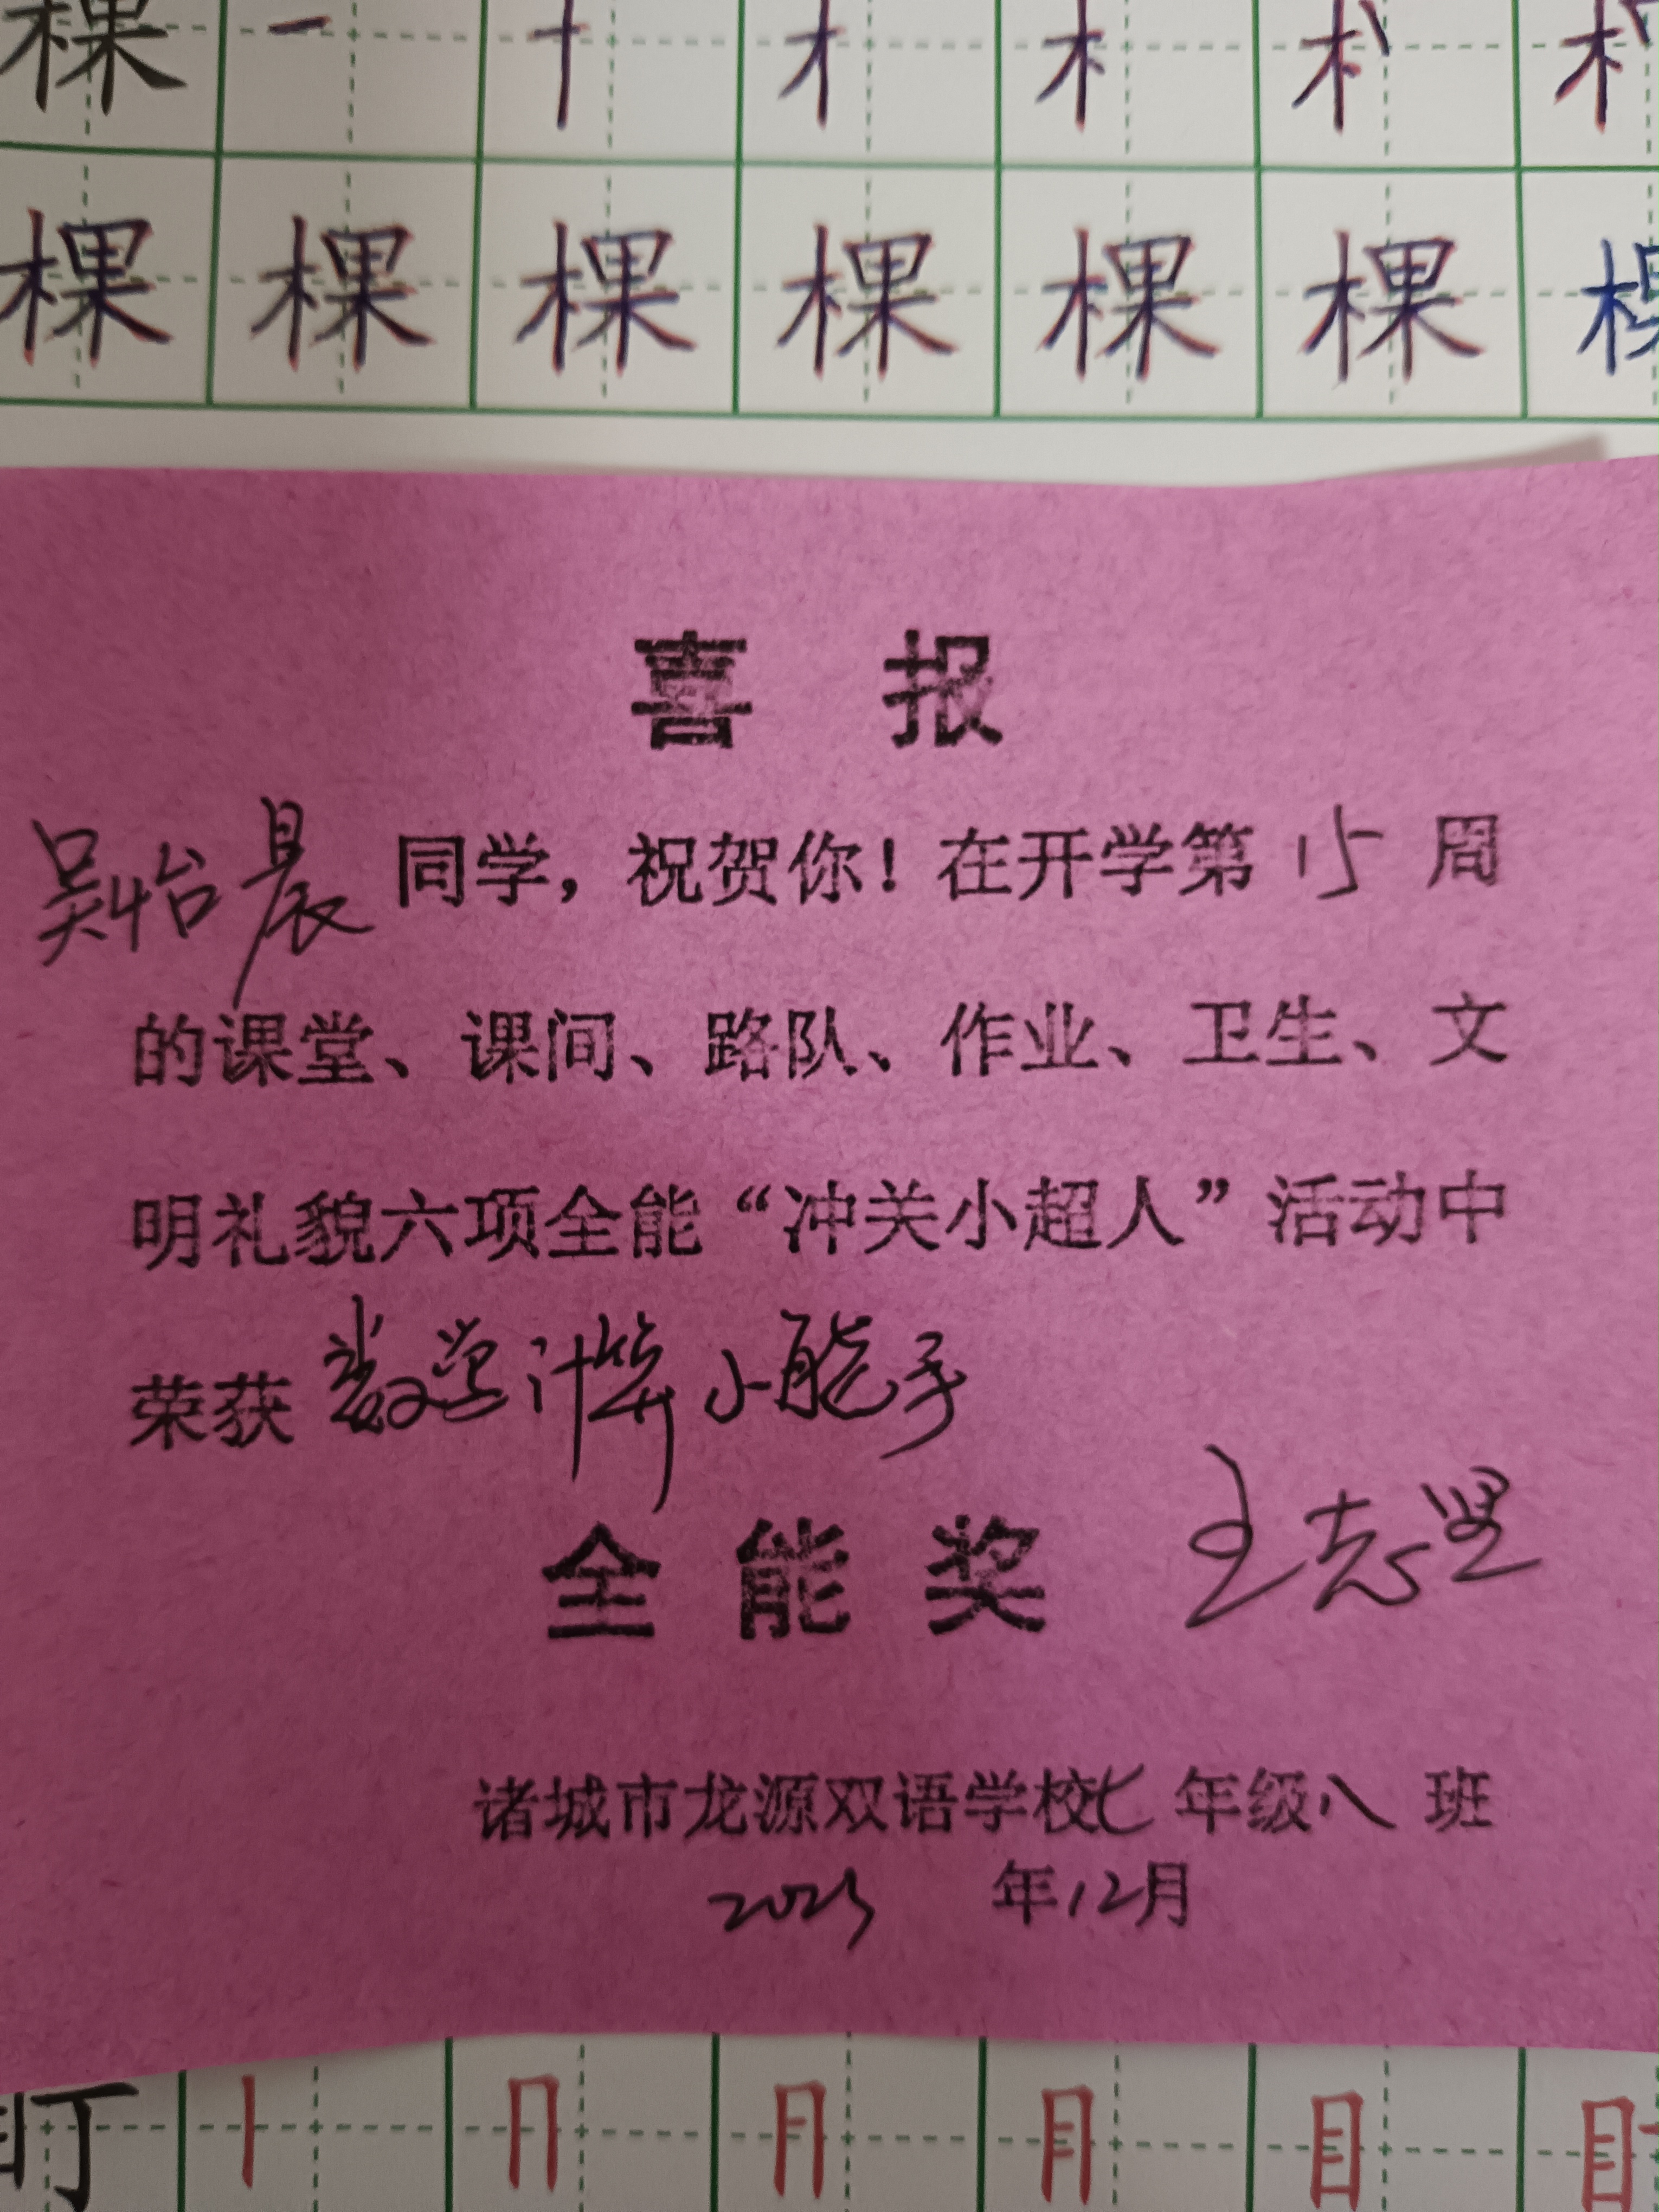 棵 一 十 才 木
棵 棵 棵 棵 棵 棵 棵
喜 报
吴怡晨 同学，祝贺你！在开学第 15 周
的课堂、课间、路队、作业、卫生、文
明礼貌六项全能“冲关小超人”活动中
荣获 数学计算小能手
全 能 奖 王志坚
诸城市龙源双语学校七年级八班
2023 年12月
盯 丨 冂 月 目